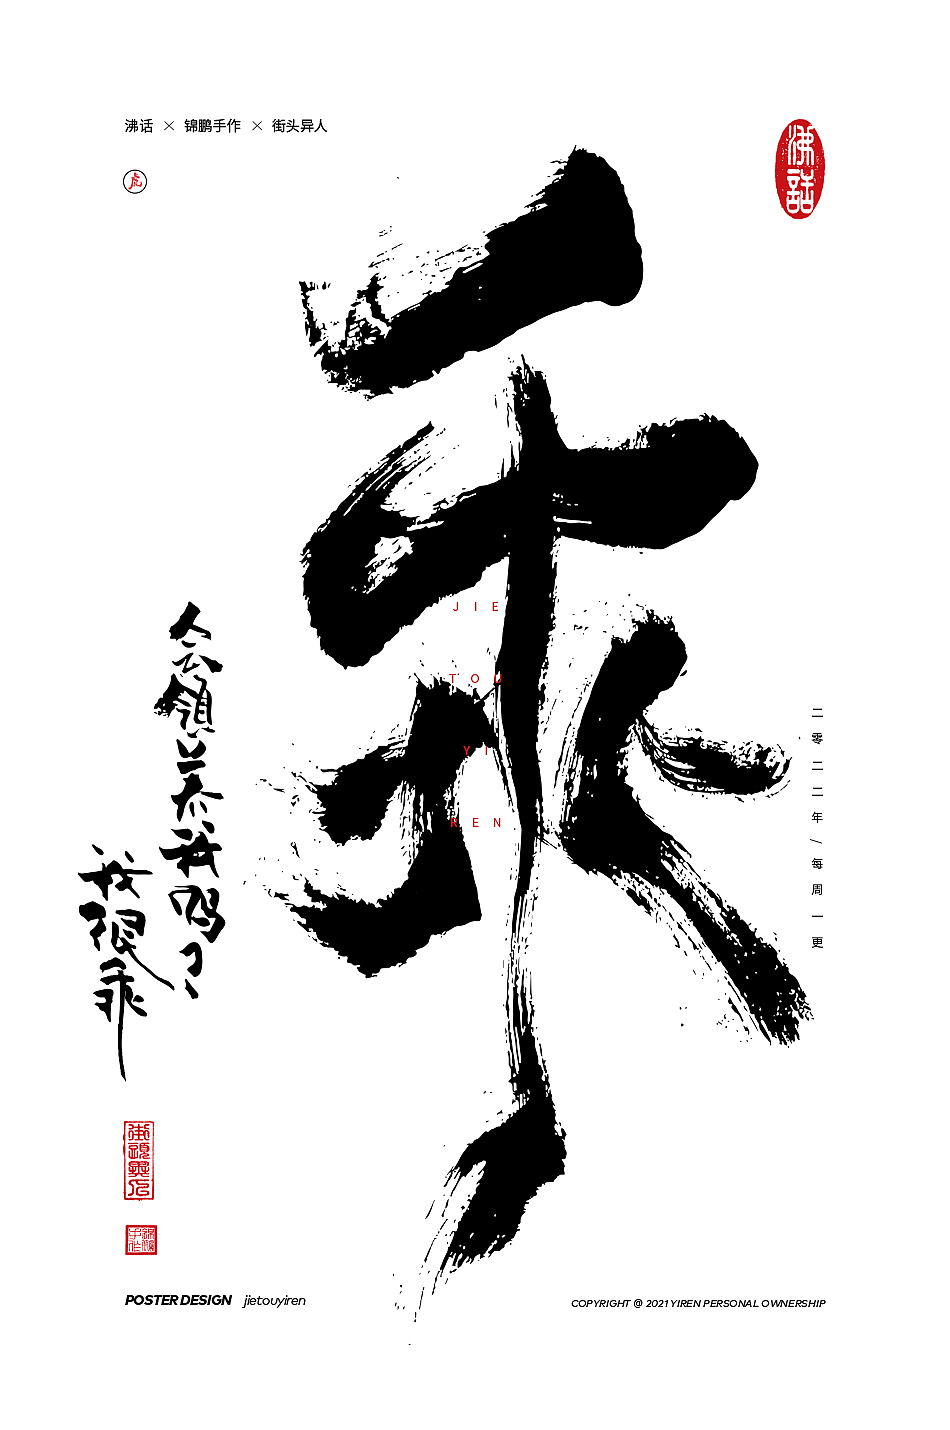 沸话 × 锦鹏手作 × 街头异人
虎
沸話
乖
JIE
TOU
YI
REN
会領养我吗?
我很乖
二零二二年/每周一更
街頭異人
POSTER DESIGN jietouyiren
COPYRIGHT @ 2021 YIREN PERSONAL OWNERSHIP